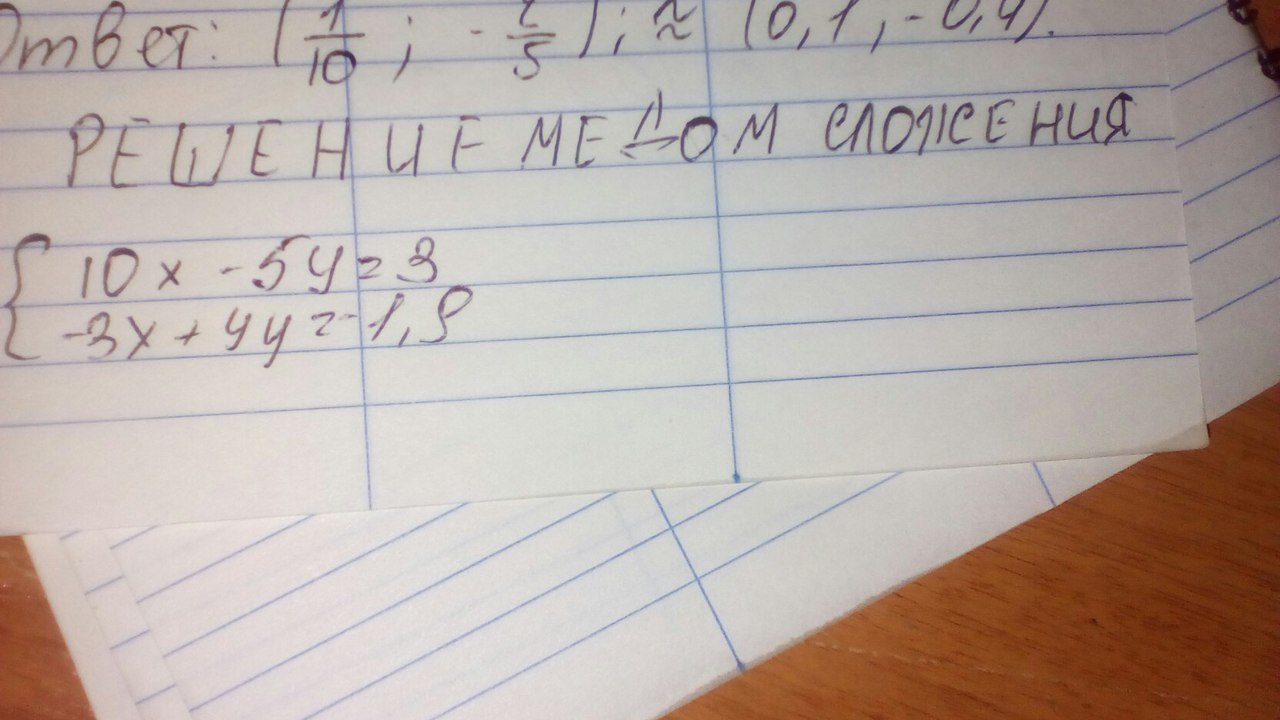 Ответ: (1/10; -2/5); ≈ (0,1, -0,4).
РЕШЕНИЕ МЕДОМ СЛОЖЕНИЯ
10x - 5y = 3
-3x + 4y = -1,9